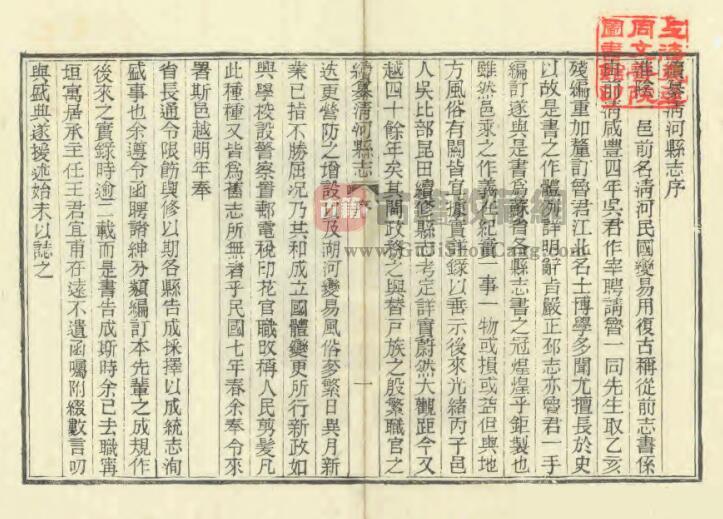 續纂清河縣志序
淮陰　邑前名清河民國變易用復古稱從前志書係
由前清咸豐四年吳君作宰聘請魯一同先生取乙亥
殘編重加釐訂魯君江北名士博學多聞尤擅長於史
以故是書之作體例詳明辭旨嚴正邳志亦魯君一手
編訂遂與是書為蘇省各縣志書之冠煌煌乎鉅製也
雖然邑乘之作義在紀實一事一物或損或益但與地
方風俗有關皆宜據實詳錄以垂示後來光緒丙子邑
人吳比部昆田續修縣志考定詳實蔚然大觀距今又
越四十餘年矣其間政務之興替戶族之殷繁職官之
續纂清河縣志　序　一
迭更營防之增設以及湖河變易風俗奓繁日異月新
業已指不勝屈况乃共和成立國體變更所行新政如
興學校設警察置郵電稅印花官職改稱人民剪髮凡
此種種又皆為舊志所無者乎民國七年春余奉令來
署斯邑越明年奉
省長通令限飭與修以期各縣告成採擇以成統志洵
盛事也余遵令函聘諸紳分類編訂本先輩之成規作
後來之實錄時逾二載而是書告成斯時余已去職寗
垣寓居承主任王君宜甫在遠不遺函囑附綴數言叨
與盛典遂援述始末以誌之
古籍收藏網
www.GujiShouCang.com